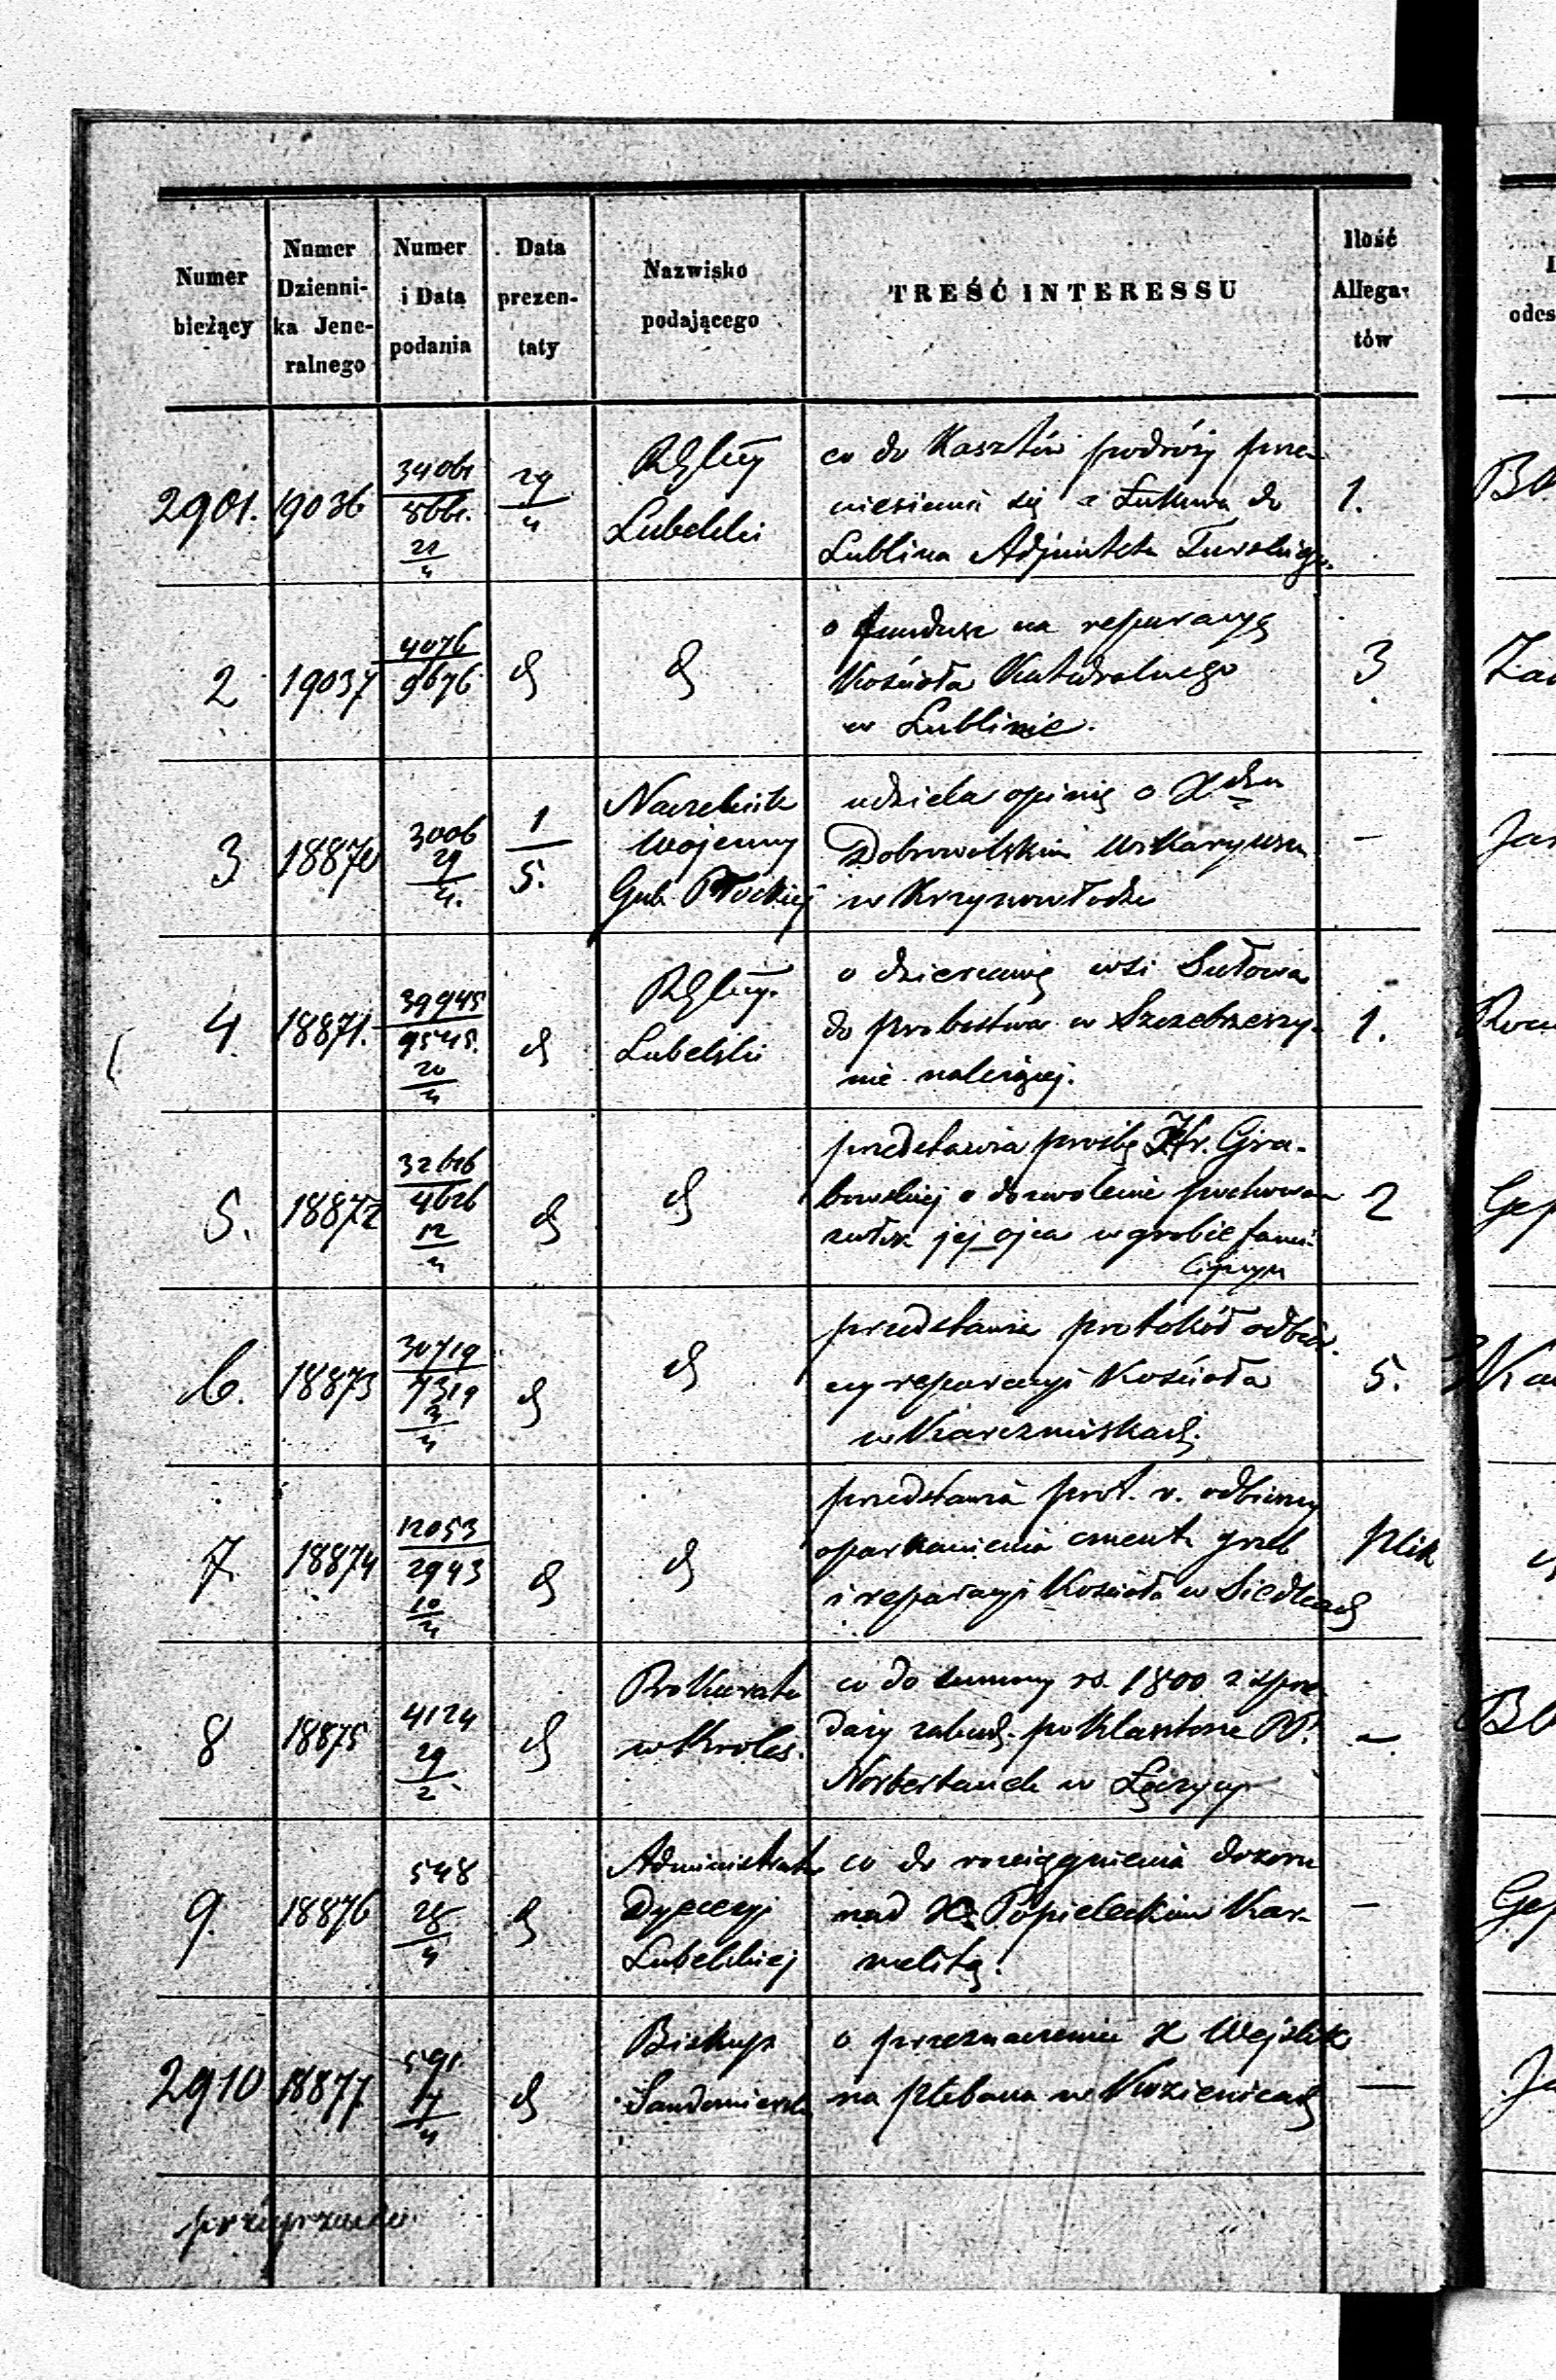 Numer bieżący
Numer Dziennika Jeneralnego
Numer i Data podania
Data prezentaty
Nazwisko podającego
TREŚĆ INTERESSU
Ilość Allegatów
2901. 19036 29/4 Lubelski 1.
co do Kosztów podróży prze-
niesienia się z Łukowa do
Lublina Adjunkta
2 19037 4076/9676 d d 3
o fundusz na reparacyą
Kościoła Katedralnego
w Lublinie.
3 18870 3006 29/4. 1/5. Naczelnik Wojenny Gub. Płockiej –
udziela opinię o Xdzu
Dobrowolskim Wikaryuszu
w Krzynowłodze
4. 18871. 39945/9545. 20/4 d Lubelski 1.
o dzierżawę wsi Sułowa
do probostwa w Szczebrzeszy-
nie należącej.
5. 18872 4626 12/4 d d 2
przedstawia prośbę Hr. Gra-
bowskiej o dozwolenie pochowan
zwłok jej ojca w grobie fami-
lijnym
6. 18873 30719/7319 d d 5.
przedstawia protokół odbior-
czy reparacyi Kościoła
w Karczmiskach.
7. 18874 12053/2943 10/4 d d plik
przedstawia prot. r. odbiorczy
oparkanienia cment. grzeb
i reparacyi Kościoła w Siedlcach
8 18875 4124 29/2 d Prokurator w Króles. –
co do summy rs. 1800 z sprze-
daży zabud. po Klasztorze PP.
Norbertanek w Łęczycy
9. 18876 548 28/4 d Administrator Dyecezyi Lubelskiej –
co do rozciągnienia dozoru
nad X. Popieleckim Kar-
melitą.
2910 18877. 591. 17/4 d Biskup Sandomierski —
o przeznaczenie X Wejslik
na plebana w Kozienicach
odes